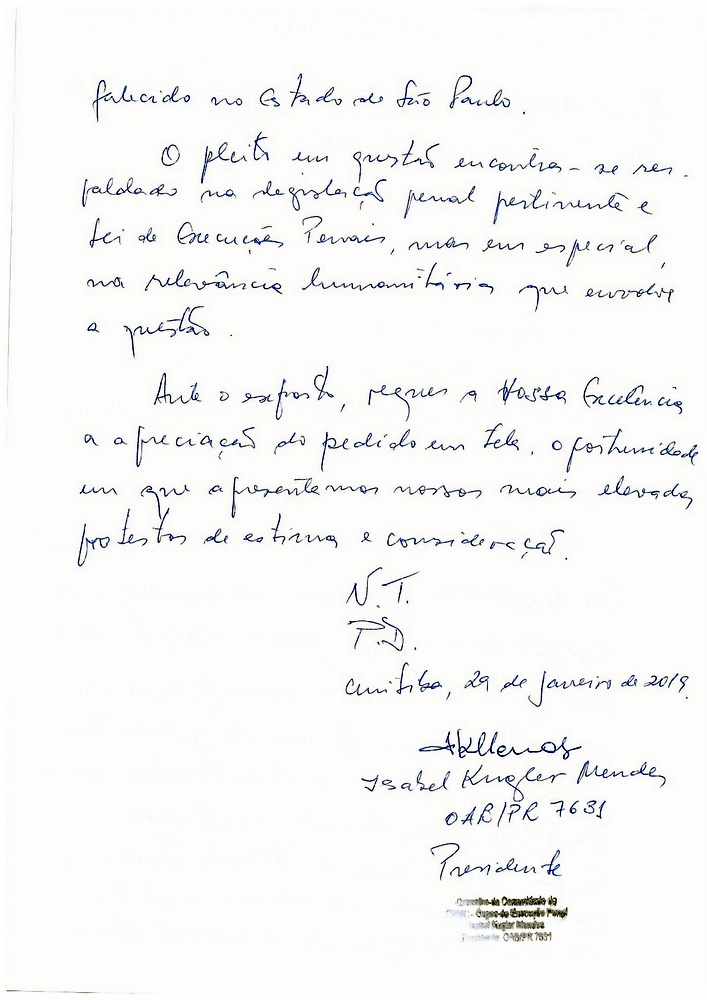 falecido no Estado de São Paulo.
O pleito em questão encontra-se res-
paldado na legislação penal pertinente e
Lei de Execuções Penais, mas em especial,
na relevância humanitária que envolve
a questão.
Ante o exposto, requer a Vossa Excelência
a apreciação do pedido em tela, oportunidade
em que apresentamos nossos mais elevados
protestos de estima e consideração.
N.T.
P.D.
Curitiba, 29 de janeiro de 2019.
Isabel Kugler Mendes
OAB/PR 7631
Presidente
Conselho da Comunidade de
- Órgão da Execução Penal
Isabel Kugler Mendes
Presidente OAB/PR 7631